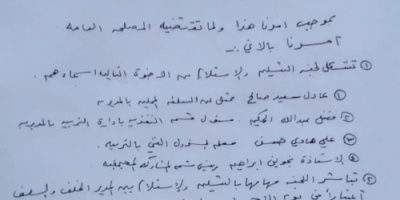 بموجب امرنا هذا ولما تقتضيه المصلحه العامه
امرنا بالاتي :-
① تتشكل لجنه التسليم والاستلام من الاخوة التاليه اسماءهم
① عادل سعيد صالح ممثل عن السلطه المحليه بالمديريه
② فضل عبدالله الحكيم مسؤول قسم التغذيه بادارة التربيه بالمديريه
③ علي هادي حسن معلم مسؤول الفني بالتربيه
④ الاستاذة نجوى ابراهيم رئيس قسم المشاركه المجتمعيه
② تباشر اللجنه مهامها بالتسليم والاستلام بين المدير الخلف والسلف